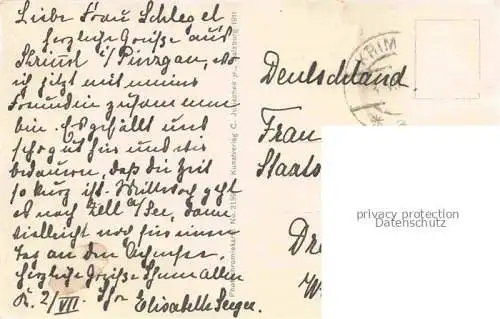 Liebe Frau Schlegel
herzliche Grüsse aus
Krimml i/Pinzgau, wo
ich jetzt mit meiner
Freundin zusammen
bin. Es gefällt uns
sehr gut hier und wir
bedauern, daß die Zeit
so kurz ist. Mittwoch geht
es nach Zell a/See, dann
vielleicht noch für einen
Tag an den
herzliche Grüsse Ihnen allen
K. 2/VII. Ihre Elisabeth Seeger.
Kunstverlag C. Jurischek, Salzburg 1911
KRIM
Deutschland
Frau
Staats
Dre
privacy protection
Datenschutz